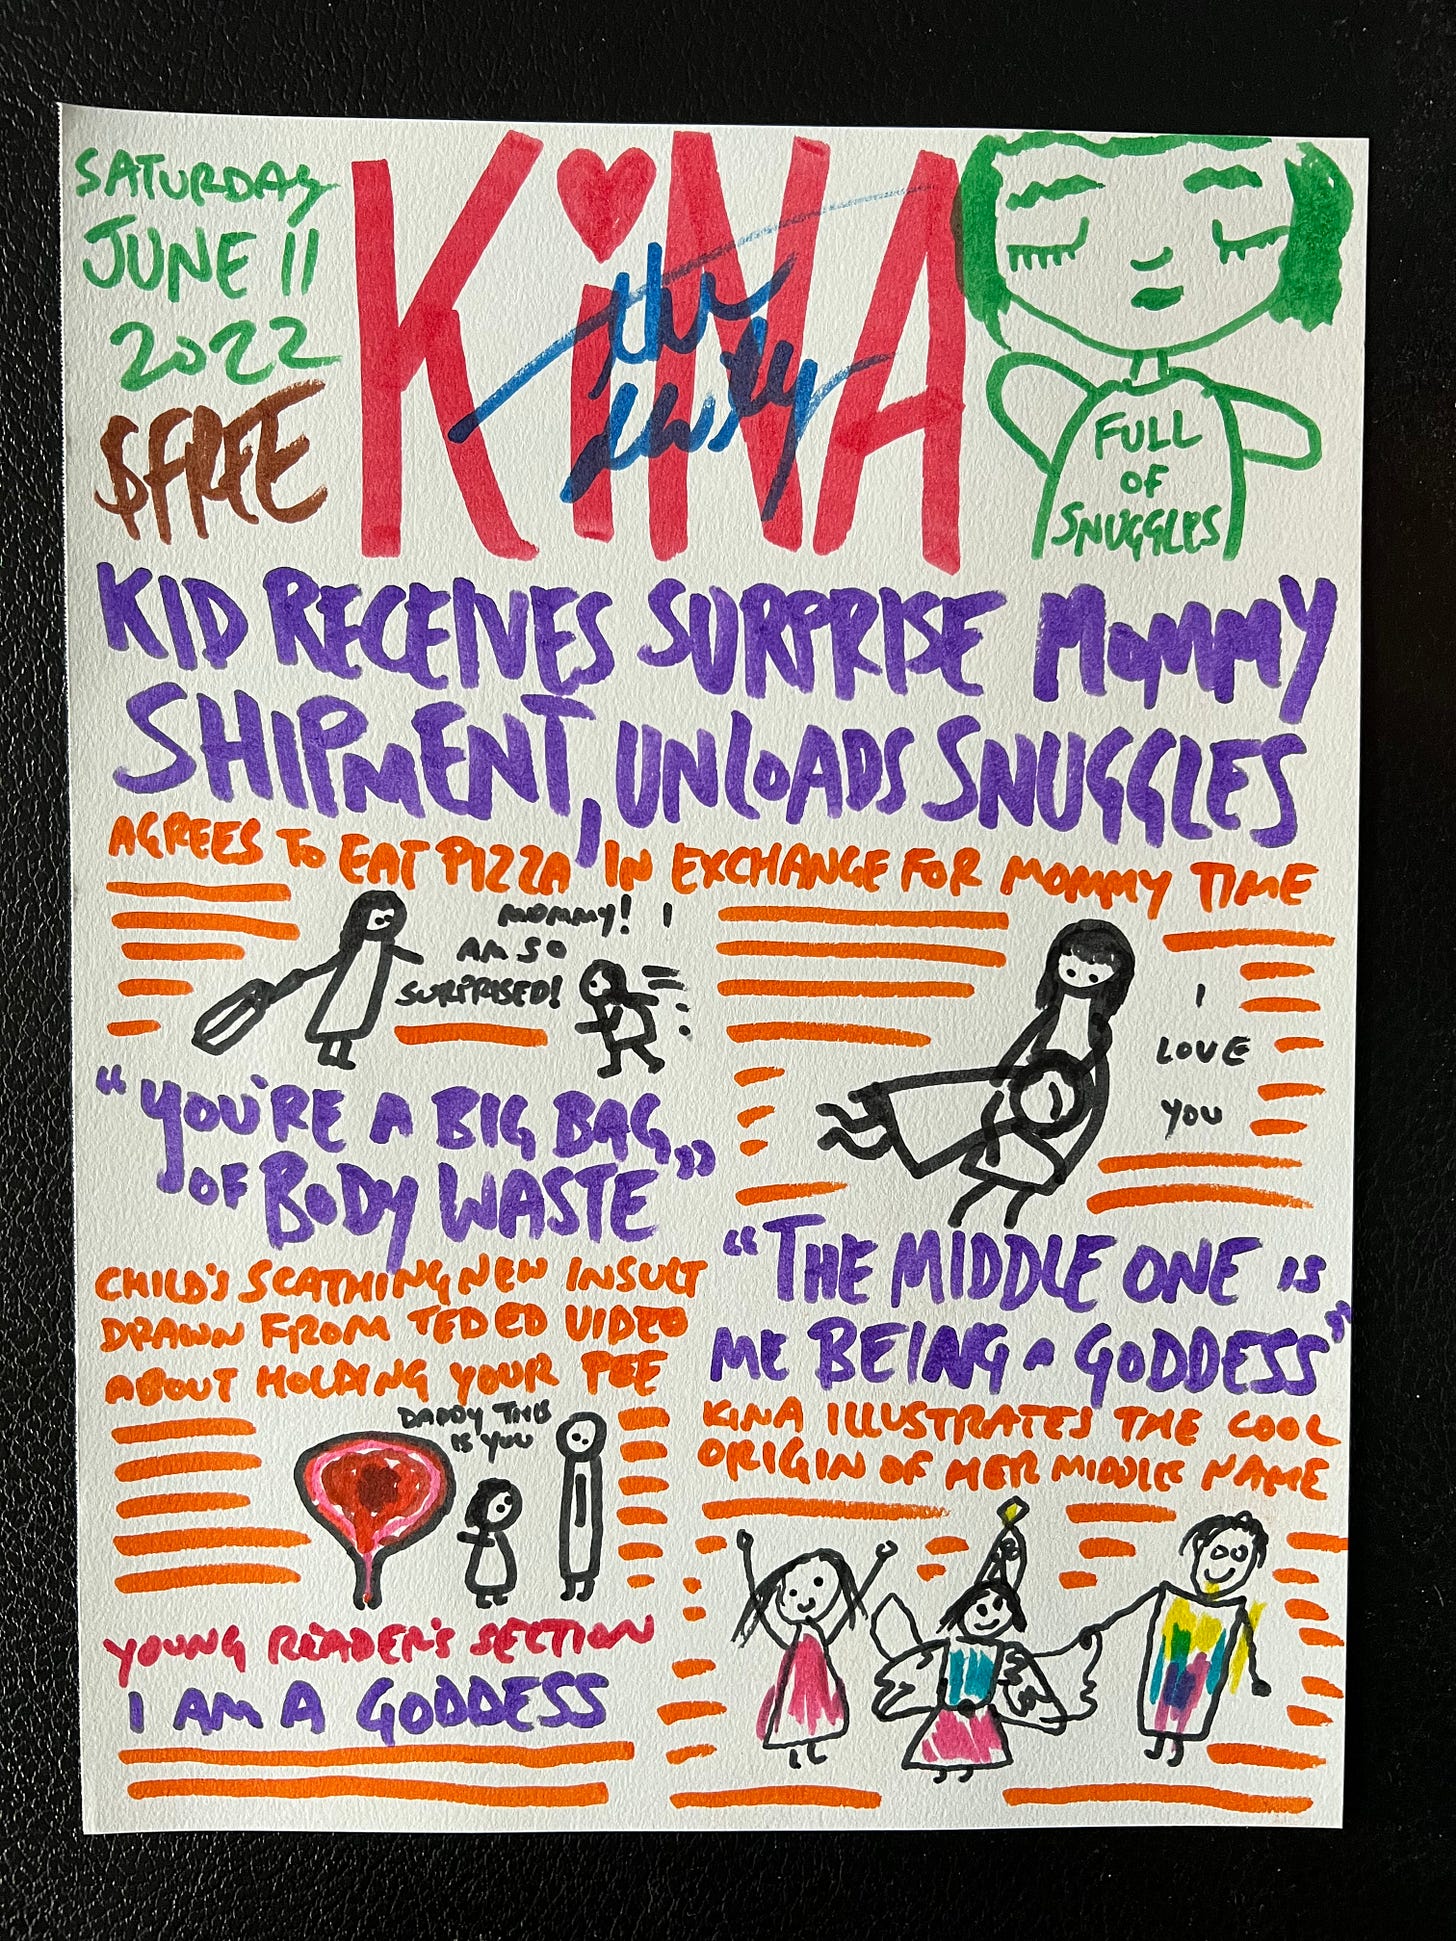 SATURDAY
JUNE 11
2022
$FREE
KiNA
the
daily
FULL
OF
SNUGGLES
KID RECEIVES SURPRISE MOMMY
SHIPMENT, UNLOADS SNUGGLES
AGREES TO EAT PIZZA IN EXCHANGE FOR MOMMY TIME
MOMMY! I
AM SO
SURPRISED!
I
LOVE
YOU
"YOU'RE A BIG BAG
OF BODY WASTE"
CHILD'S SCATHING NEW INSULT
DRAWN FROM TED ED VIDEO
ABOUT HOLDING YOUR PEE
DADDY THIS
IS YOU
YOUNG READER'S SECTION
I AM A GODDESS
"THE MIDDLE ONE IS
ME BEING A GODDESS"
KINA ILLUSTRATES THE COOL
ORIGIN OF HER MIDDLE NAME